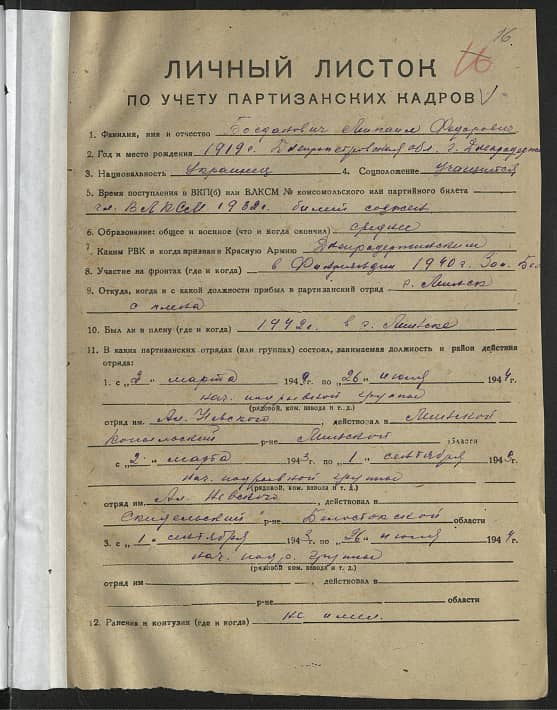 16.
16
ЛИЧНЫЙ ЛИСТОК
ПО УЧЕТУ ПАРТИЗАНСКИХ КАДРОВ
1. Фамилия, имя и отчество Богданович Михаил Федорович
2. Год и место рождения 1919г. Днепропетровская обл. г. Днепродзерж
3. Национальность Украинец 4. Соцположение Учащийся
5. Время поступления в ВКП(б) или ВЛКСМ № комсомольского или партийного билета
чл. ВЛКСМ 1932г. билет
6. Образование: общее и военное (что и когда окончил) среднее
7. Каким РВК и когда призван в Красную Армию Днепродзержинским
8. Участие на фронтах (где и когда) в Финляндии 1940г. Зап. Бел
9. Откуда, когда и с какой должности прибыл в партизанский отряд г. Минск
с плена
10. Был ли в плену (где и когда) 1942г. в г. Минске
11. В каких партизанских отрядах (или группах) состоял, занимаемая должность и район действия
отряда:
1. с „2“ марта 194 г. по „26“ июля 1944
нач. группы
(рядовой, ком. взвода и т. д.)
отряд им. Ал. Невского, действовал в Минской
р-не Минской области
с „2“ марта 1943г. по „1“ сентября 194
нач. группы
(рядовой, ком. взвода и т. д.)
отряд им. Ал. Невского, действовал в
Скидельский р-не Белостокской области
3. с „1“ сентября 1943г. по „26“ июля 1944г.
нач. группы
(рядовой, ком. взвода и т. д.)
отряд им. , действовал в
р-не области
12. Ранения и контузии (где и когда) не имел.